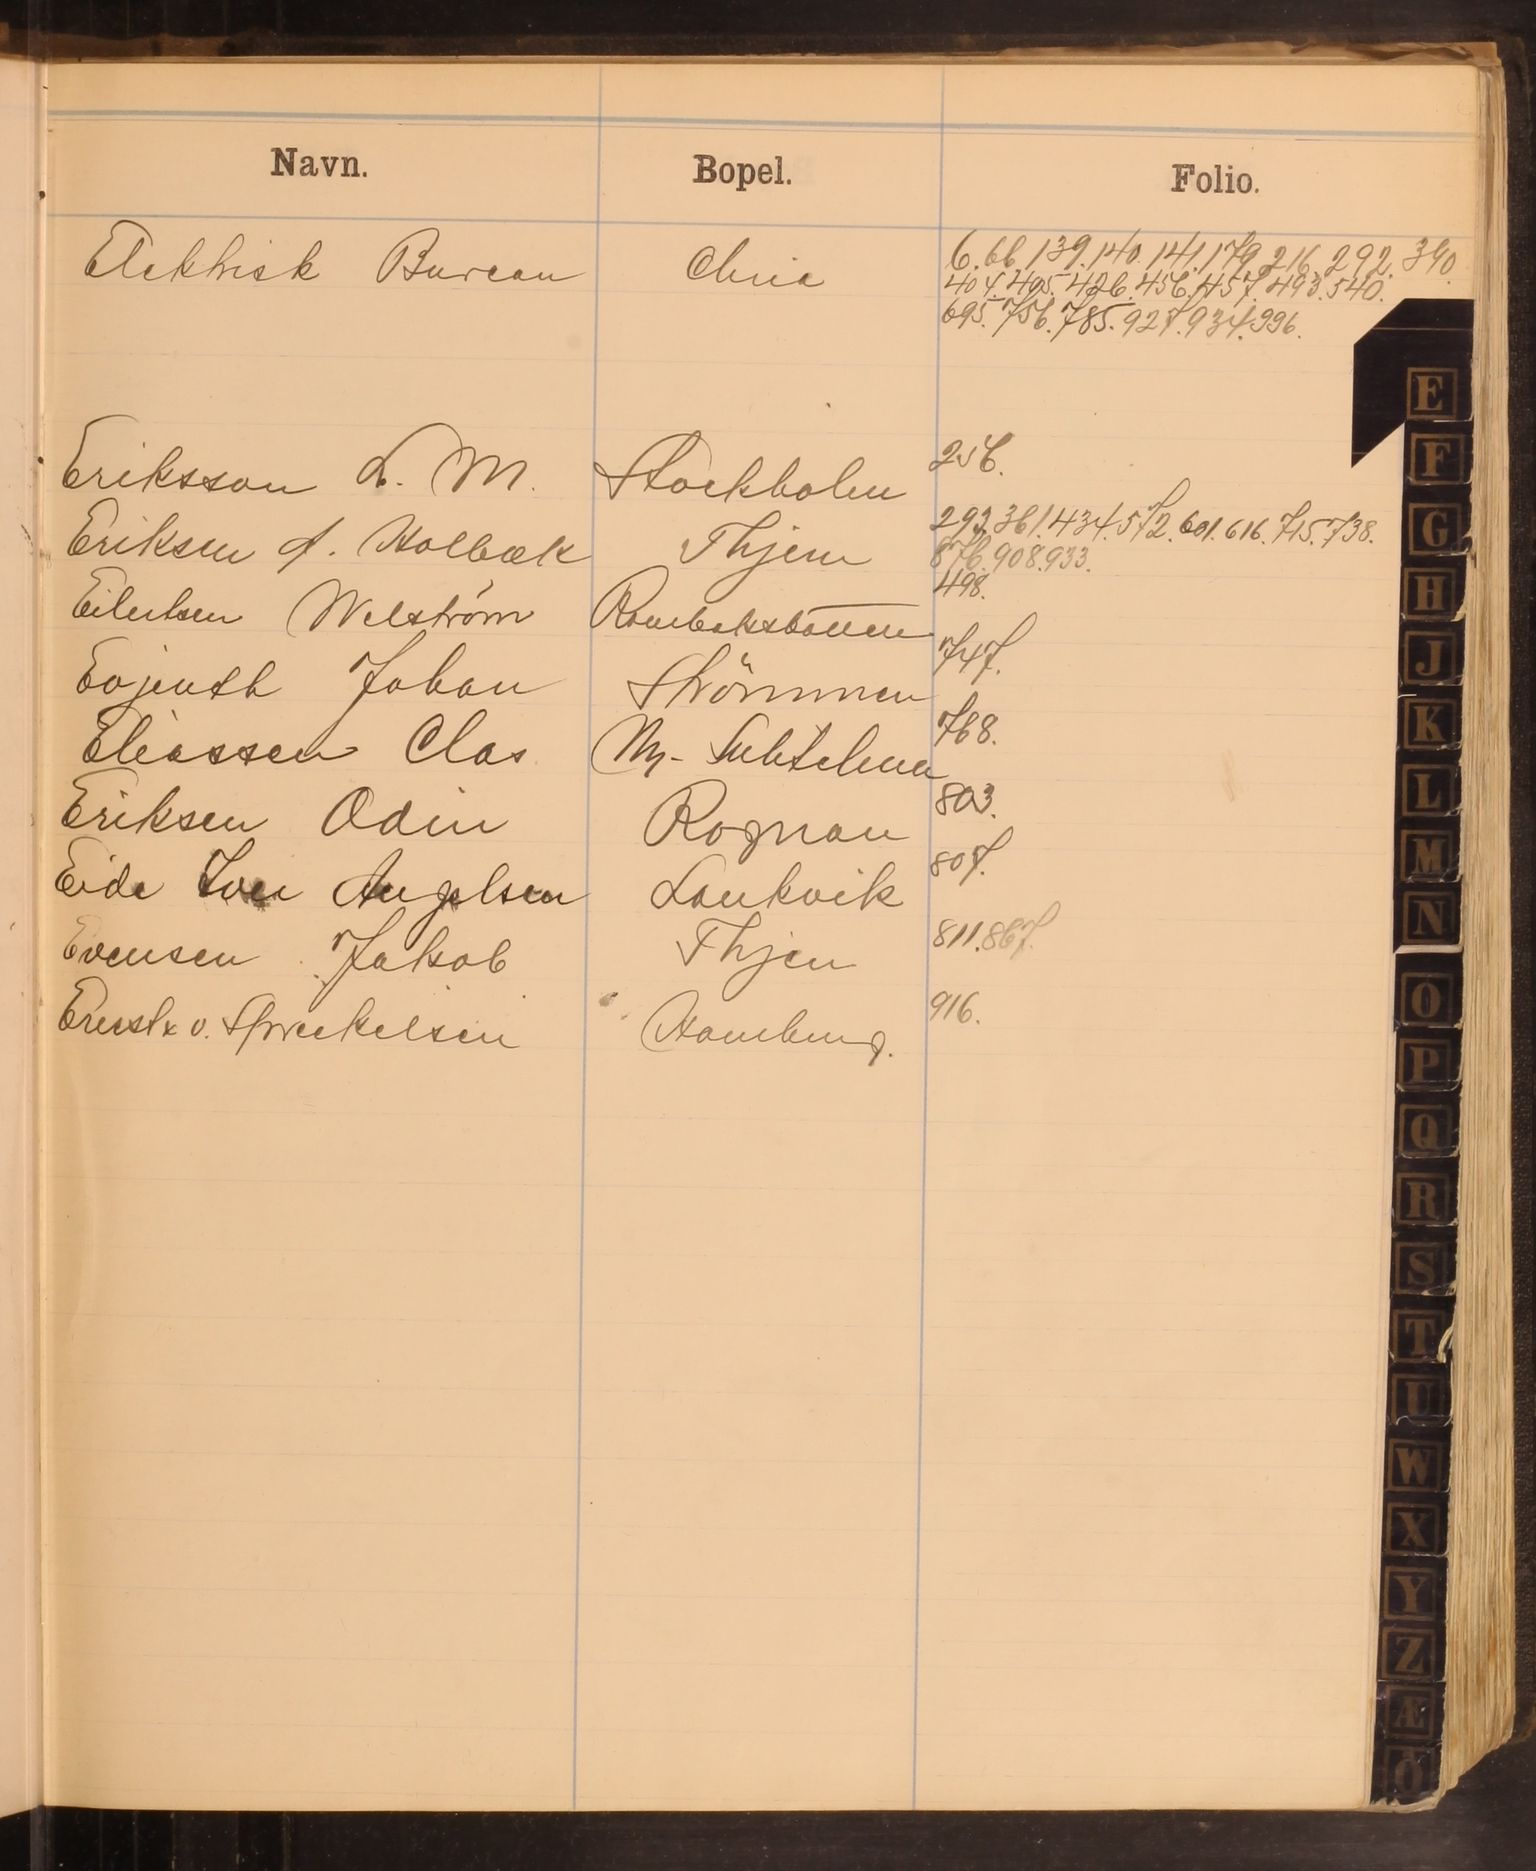 Navn. Bopel. Folio.
Elektrisk Bureau Chria 6. 66. 139. 140. 141. 179. 216. 292. 390.
404. 405. 426. 456. 457. 493. 540.
695. 756. 785. 927. 934. 996.
Eriksson L. M. Stockholm 256.
Eriksen A. Holbæk Thjem 293. 361. 434. 572. 601. 616. 715. 738.
876. 908. 933.
Eilertsen Welström Rombaksbotten 498.
Evjenth Johan Strömmen 747.
Eliassen Clas 768.
Eriksen Odin Rognan 803.
Eide Iver Angelsen Laukvik 807.
Evensen Jakob Thjem 811. 867.
Ernst v. Spreckelsen Hamburg. 916.
E
F
G
H
J
K
L
M
N
O
P
Q
R
S
T
U
W
X
Y
Z
Æ
Ø